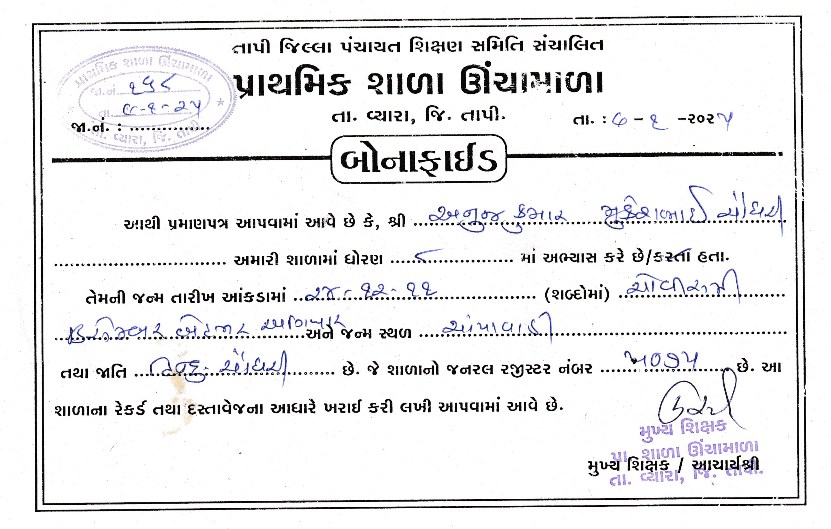 તાપી જિલ્લા પંચાયત શિક્ષણ સમિતિ સંચાલિત
પ્રાથમિક શાળા ઊંચામાળા
તા. વ્યારા, જિ. તાપી.
પ્રાથમિક શાળા ઊંચામાળા
જા.નં.
તા.
તા. વ્યારા, જિ. તાપી
જા.નં. : ..............
તા. : ૭ - ૧ -૨૦૨૫
બોનાફાઈડ
આથી પ્રમાણપત્ર આપવામાં આવે છે કે, શ્રી અનુજકુમાર મુકેશભાઈ ચૌધરી
અમારી શાળામાં ધોરણ ૮ માં અભ્યાસ કરે છે/કરતા હતા.
તેમની જન્મ તારીખ આંકડામાં ૨૪-૧૨-૧૧ (શબ્દોમાં) ચોવીસમી
ડિસેમ્બર બેહજાર અગિયાર અને જન્મ સ્થળ ચાંપાવાડી
તથા જાતિ હિન્દુ ચૌધરી છે. જે શાળાનો જનરલ રજીસ્ટર નંબર ૫૦૭૫ છે. આ
શાળાના રેકર્ડ તથા દસ્તાવેજના આધારે ખરાઈ કરી લખી આપવામાં આવે છે.
મુખ્ય શિક્ષક
પ્રા. શાળા ઊંચામાળા
મુખ્ય શિક્ષક / આચાર્યશ્રી
તા. વ્યારા, જિ. તાપી.